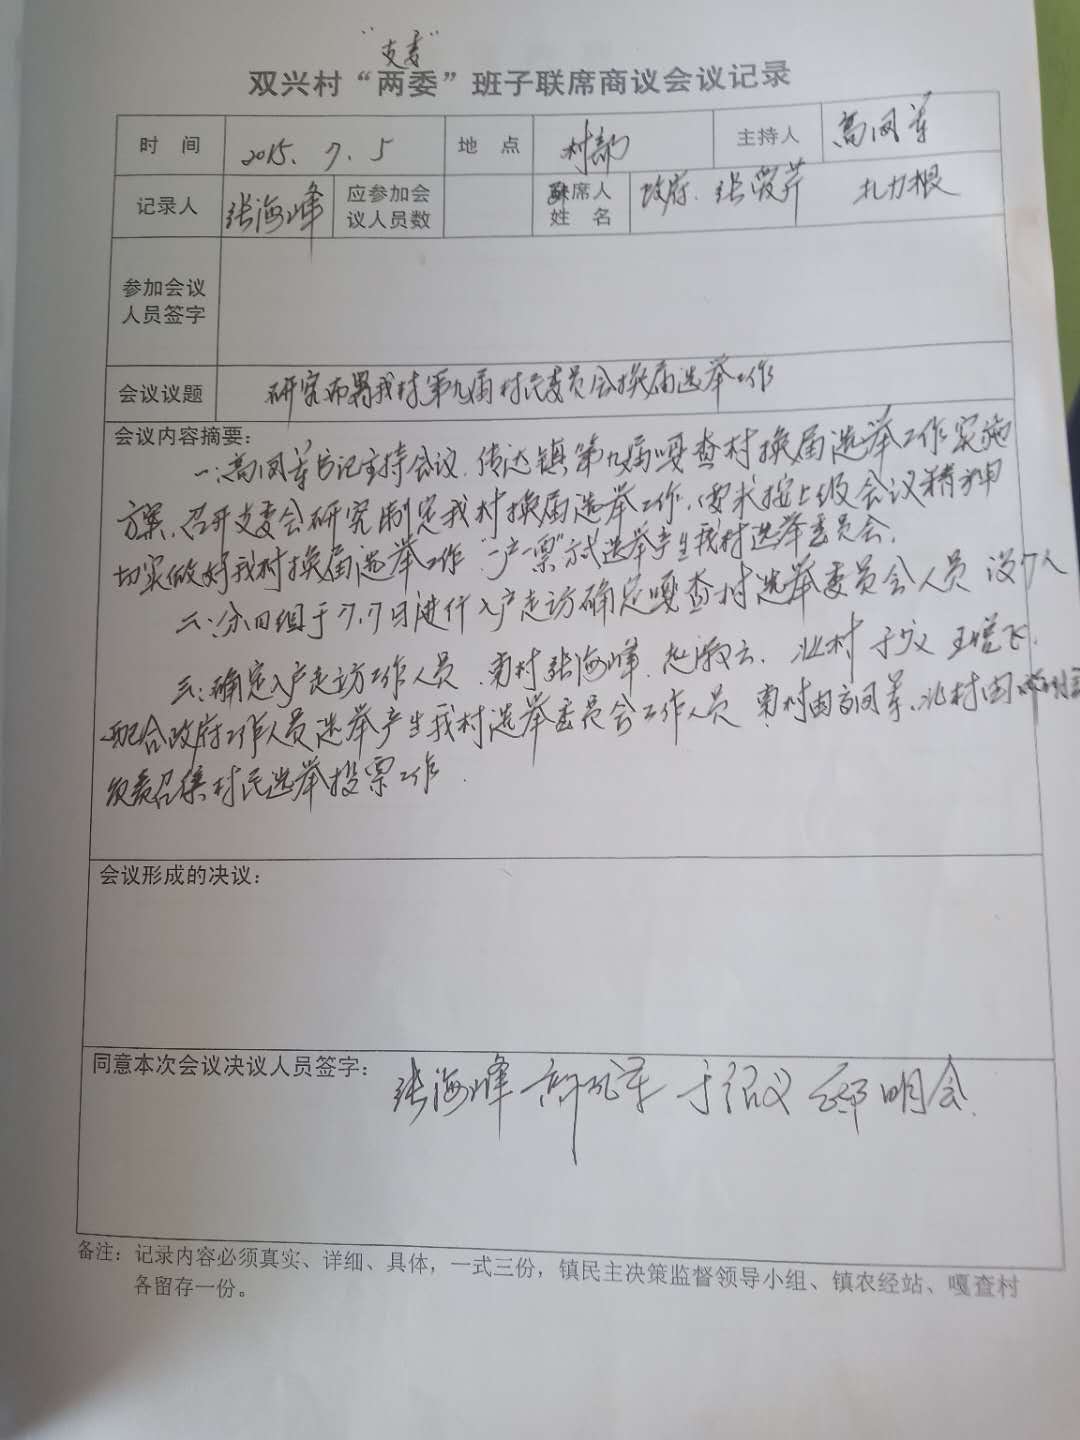 “支委”
双兴村“两委”班子联席商议会议记录
时 间 2015.7.5 地 点 村部 主持人 高凤军
记录人 张海峰 应参加会议人员数 席人姓名 政府 张霞芹 扎力根
参加会议人员签字
会议议题 研究布署我村第九届村民委员会换届选举工作
会议内容摘要：
一、高凤军书记主持会议，传达镇第九届嘎查村换届选举工作实施
方案，召开支委会研究制定我村换届选举工作，要求按上级会议精神
切实做好我村换届选举工作“一户一票”方式选举产生我村选举委员会.
二、分四组于7.7日进行入户走访确定嘎查村选举委员会人员 设7人
三、确定入户走访工作人员 南村张海峰、赵淑云、北村 于义 王增飞.
配合政府工作人员选举产生我村选举委员会工作人员 南村由高凤军、北村由
负责召集村民选举投票工作.
会议形成的决议：
同意本次会议决议人员签字：
张海峰 明会
备注：记录内容必须真实、详细、具体，一式三份，镇民主决策监督领导小组、镇农经站、嘎查村
各留存一份。